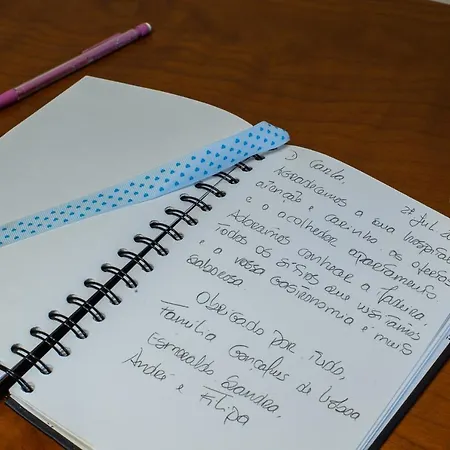 27 Jul 20
D. Carla,
Agradecemos a sua hospitali
atenção e carinho, as ofertas
e o acolhedor apartamento
Adoramos conhecer a
todos os sítios que visitamos
e a vossa Gastronomia é muito
saborosa
Obrigado por tudo,
Família Gonçalves de Lisboa
Esmeraldo Sandra,
André e
Filipa